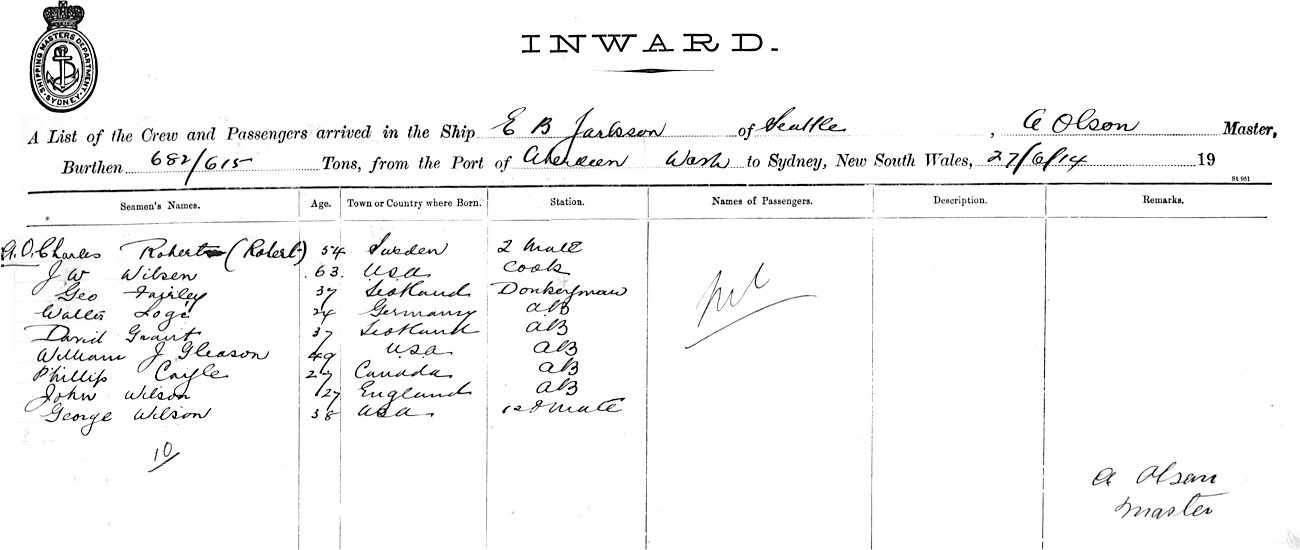 SHIPPING MASTERS DEPARTMENT SYDNEY
INWARD.
A List of the Crew and Passengers arrived in the Ship E B Jackson of Seattle, A Olson Master,
Burthen 682/615 Tons, from the Port of Aberdeen Wash to Sydney, New South Wales, 27/6/14 19
St 951
Seamen's Names. Age. Town or Country where Born. Station. Names of Passengers. Description. Remarks.
Charles Robert (Robert) 54 Sweden 2 Mate
J W Wilsen 63 USA Cook
Geo Fairley 37 Scotland Donkeyman
Walter Loge 24 Germany AB
David Grant 37 Scotland AB
William J Gleason 49 USA AB
Phillip Cayle 27 Canada AB
John Wilson 27 England AB
George Wilson 38 USA 1st Mate
Nil
10
A Olson
Master